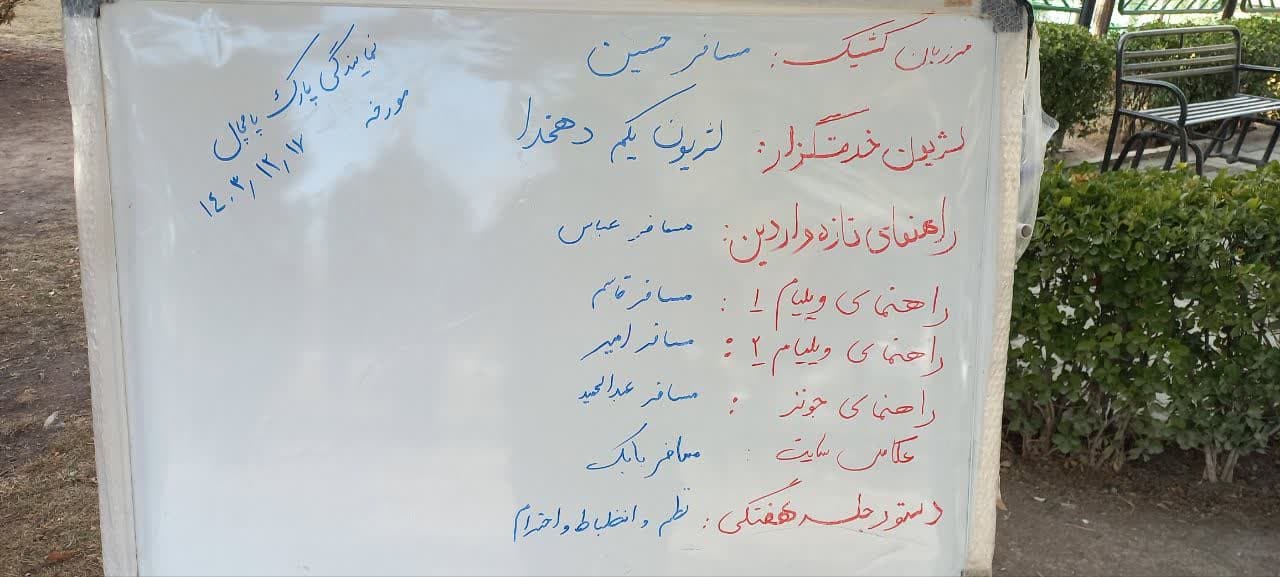 مرزبان کشیک: مسافر حسین
لژیون خدمتگزار: لژیون یکم دهخدا
راهنمای تازه واردین: مسافر عباس
راهنمای ویلیام ۱: مسافر قاسم
راهنمای ویلیام ۲: مسافر امیر
راهنمای جونز: مسافر عبدالحمید
عکاس سایت: مسافر بابک
دستور جلسه هفتگی: نظم و انظباط و احترام
نمایندگی پارک پامچال
مورخه ۱۴۰۳/۱۲/۱۷